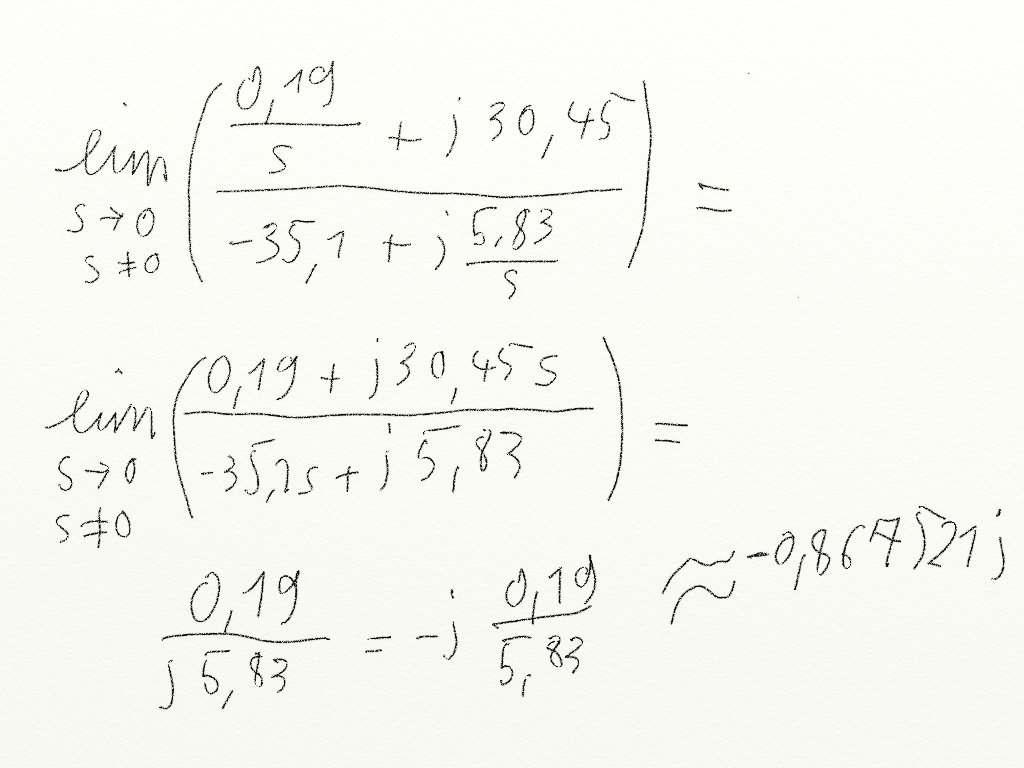 lim s→0 s≠0 ( (0,19/s + j 30,45) / (-35,1 + j 5,83/s) ) =
lim s→0 s≠0 ( (0,19 + j30,45 s) / (-35,1s + j 5,83) ) =
0,19 / j 5,83 = -j 0,19 / 5,83 ≈ -0,867521 j